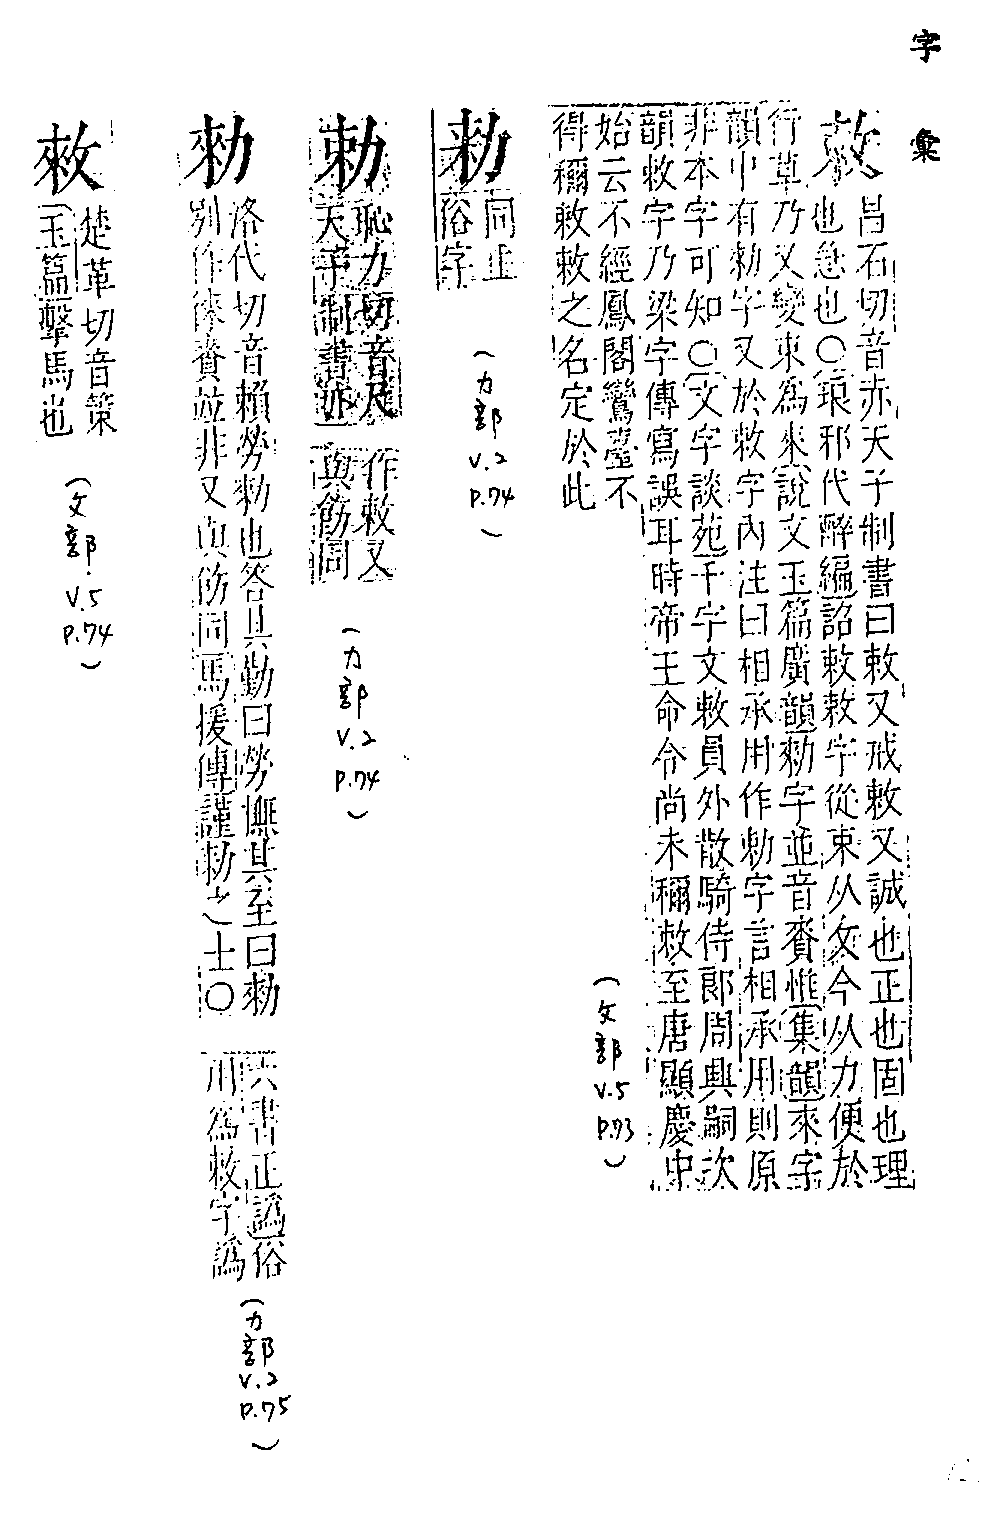 字彙
敕
呂石切音赤天子制書曰敕又戒敕又誠也正也固也理
也急也〇瑯邪代醉編詔敕敕字從束从攵今从力便於
行草乃又變束為來說文玉篇廣韻勑字並音賚惟集韻來字
韻中有勑字又於敕字內注曰相承用作勅字言相承用則原
非本字可知〇文字談苑千字文敕員外散騎侍郎周興嗣次
韻敕字乃梁字傳寫誤耳時帝王命令尚未稱敕至唐顯慶中
始云不經鳳閣鸞臺不
得稱敕敕之名定於此
(攵部 V.5 P.73)
勅
同上
俗字
(力部 V.2 P.74)
勅
恥力切音尺
天子制書亦
作敕又
與飭同
(力部 V.2 P.74)
勑
洛代切音賴勞勑也答其勤曰勞撫其至曰勑
別作徠賚並非又與飭同馬援傳謹勑之士〇
六書正譌俗
用為敕字譌
(力部 V.2 P.75)
敇
楚革切音策
玉篇擊馬也
(攵部 V.5 P.74)